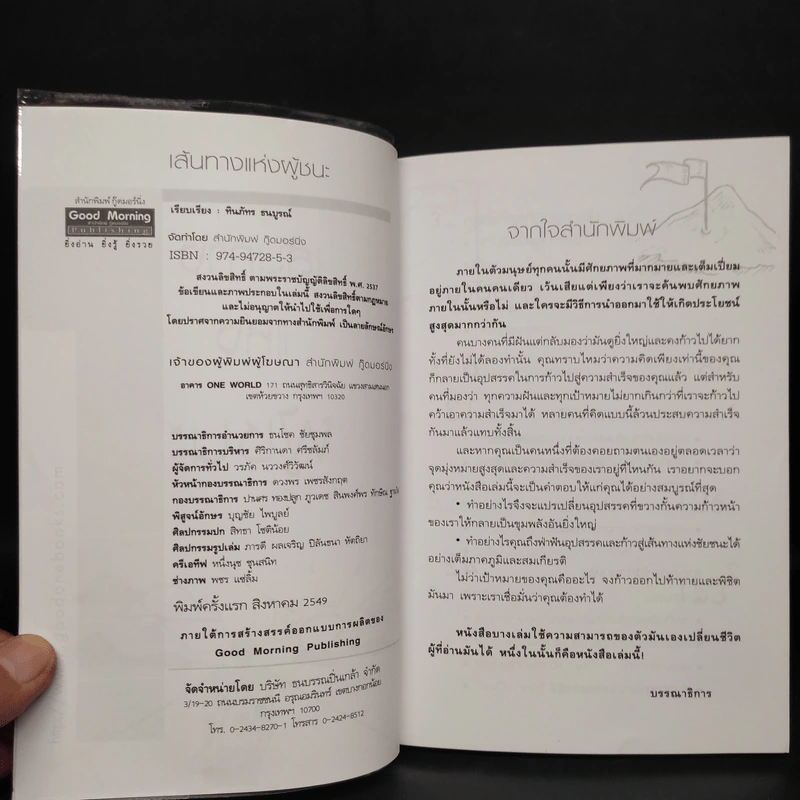 เส้นทางแห่งผู้ชนะ
สำนักพิมพ์ กู๊ดมอร์นิ่ง
Good Morning
Publishing
ยิ่งอ่าน ยิ่งรู้ ยิ่งรวย
เรียบเรียง : ทินภัทร ธนบูรณ์
จัดทำโดย สำนักพิมพ์ กู๊ดมอร์นิ่ง
ISBN : 974-94728-5-3
สงวนลิขสิทธิ์ ตามพระราชบัญญัติลิขสิทธิ์ พ.ศ. 2537
ข้อเขียนและภาพประกอบในเล่มนี้ สงวนลิขสิทธิ์ตามกฎหมาย
และไม่อนุญาตให้นำไปใช้เพื่อการใดๆ
โดยปราศจากความยินยอมจากทางสำนักพิมพ์ เป็นลายลักษณ์อักษร
เจ้าของผู้พิมพ์ผู้โฆษณา สำนักพิมพ์ กู๊ดมอร์นิ่ง
อาคาร ONE WORLD 171 ถนนสุทธิสารวินิจฉัย แขวงสามเสนนอก
เขตห้วยขวาง กรุงเทพฯ 10320
บรรณาธิการอำนวยการ ธนโชค ชัยชุมพล
บรรณาธิการบริหาร ศิริกานดา ศรีชลัมภ์
ผู้จัดการทั่วไป วรภัค นววงศ์วิวัฒน์
หัวหน้ากองบรรณาธิการ ดวงพร เพชรสังกฤต
กองบรรณาธิการ ปานตา ทองปลูก ภูวเดช สินพงศ์พร ทักษิณ
พิสูจน์อักษร บุญชัย ไพบูลย์
ศิลปกรรมปก สิทธา โชติน้อย
ศิลปกรรมรูปเล่ม ภารดี ผลเจริญ ปิลันธนา หัตถิยา
ครีเอทีฟ หนึ่งนุช ชูนสนิท
ช่างภาพ พชร แซ่ลิ้ม
พิมพ์ครั้งแรก สิงหาคม 2549
ภายใต้การสร้างสรรค์ออกแบบการผลิตของ
Good Morning Publishing
จัดจำหน่ายโดย บริษัท ธนบรรณปิ่นเกล้า จำกัด
3/19-20 ถนนบรมราชชนนี อรุณอมรินทร์ เขตบางกอกน้อย
กรุงเทพฯ 10700
โทร. 0-2434-8270-1 โทรสาร 0-2424-8512
จากใจสำนักพิมพ์
ภายในตัวมนุษย์ทุกคนนั้นมีศักยภาพที่มากมายและเต็มเปี่ยม
อยู่ภายในคนคนเดียว เว้นเสียแต่เพียงว่าเราจะค้นพบศักยภาพ
ภายในนั้นหรือไม่ และใครจะมีวิธีการนำออกมาใช้ให้เกิดประโยชน์
สูงสุดมากกว่ากัน
คนบางคนที่มีฝันแต่กลับมองว่ามันดูยิ่งใหญ่และคงก้าวไปได้ยาก
ทั้งที่ยังไม่ได้ลองทำนั้น คุณทราบไหมว่าความคิดเพียงเท่านี้ของคุณ
ก็กลายเป็นอุปสรรคในการก้าวไปสู่ความสำเร็จของคุณแล้ว แต่สำหรับ
คนที่มองว่า ทุกความฝันและทุกเป้าหมายไม่ยากเกินกว่าที่เราจะก้าวไป
คว้าเอาความสำเร็จมาได้ หลายคนที่คิดแบบนี้ล้วนประสบความสำเร็จ
กันมาแล้วแทบทั้งสิ้น
และหากคุณเป็นคนหนึ่งที่ต้องคอยถามตนเองอยู่ตลอดเวลาว่า
จุดมุ่งหมายสูงสุดและความสำเร็จของเราอยู่ที่ไหนกัน เราอยากจะบอก
คุณว่าหนังสือเล่มนี้จะเป็นคำตอบให้แก่คุณได้อย่างสมบูรณ์ที่สุด
• ทำอย่างไรจึงจะแปรเปลี่ยนอุปสรรคที่ขวางกั้นความก้าวหน้า
ของเราให้กลายเป็นขุมพลังอันยิ่งใหญ่
• ทำอย่างไรคุณถึงฟาดฟันอุปสรรคและก้าวสู่เส้นทางแห่งชัยชนะได้
อย่างเต็มภาคภูมิและสมเกียรติ
ไม่ว่าเป้าหมายของคุณคืออะไร จงก้าวออกไปท้าทายและพิชิต
มันมา เพราะเราเชื่อมั่นว่าคุณต้องทำได้
หนังสือบางเล่มใช้ความสามารถของตัวมันเองเปลี่ยนชีวิต
ผู้ที่อ่านมันได้ หนึ่งในนั้นก็คือหนังสือเล่มนี้!
บรรณาธิการ